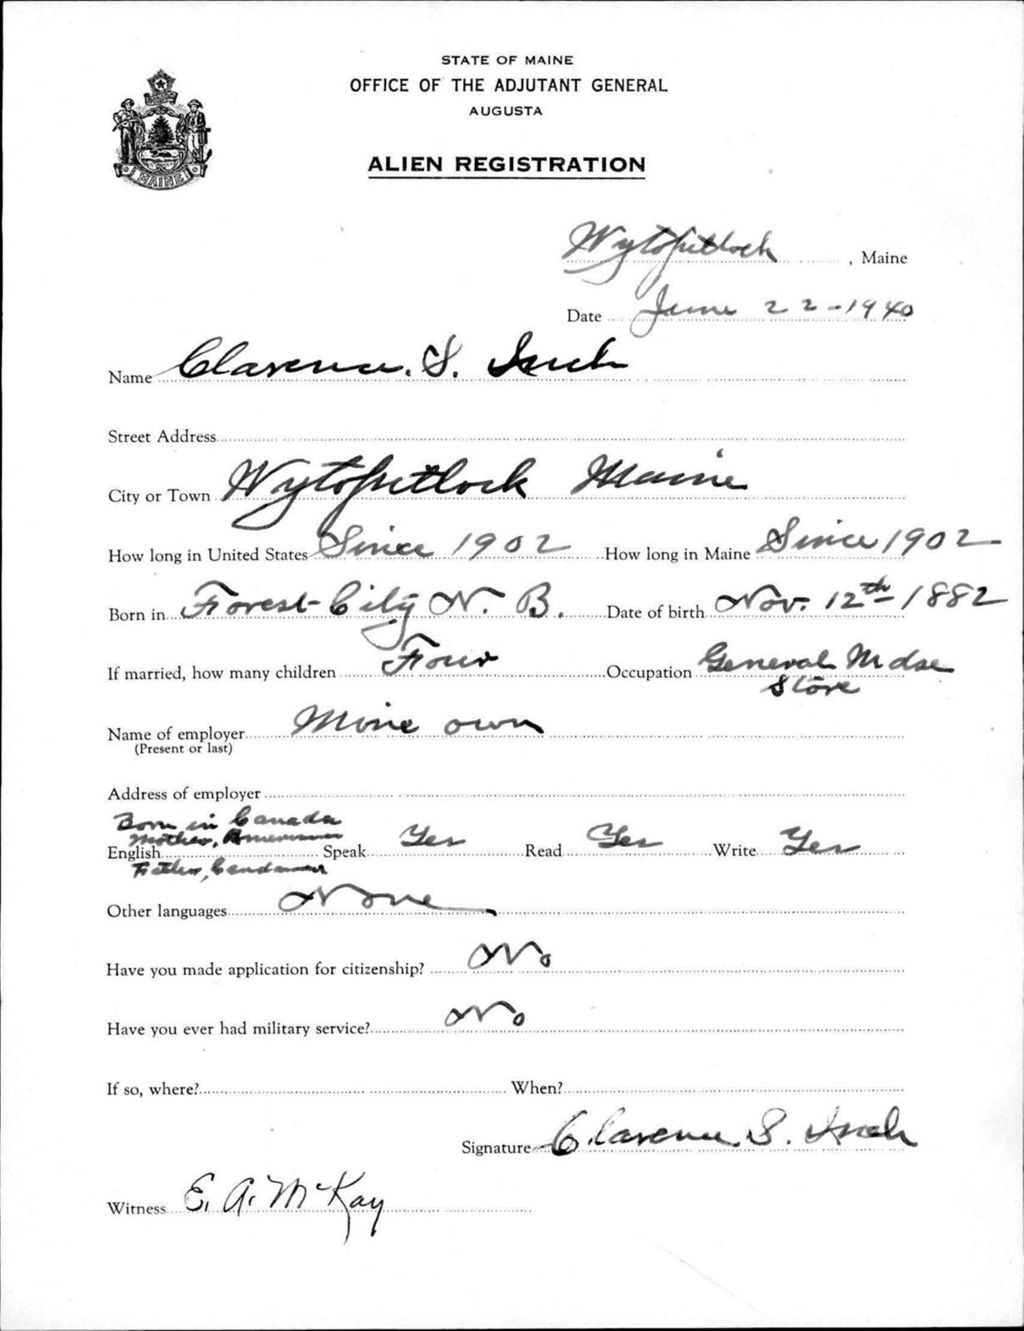 STATE OF MAINE
OFFICE OF THE ADJUTANT GENERAL
AUGUSTA
ALIEN REGISTRATION
MAINE
Wytopitlock, Maine
Date June 22-1940
Name Clarence. S. Inch
Street Address
City or Town Wytopitlock Maine
How long in United States Since 1902 How long in Maine Since 1902
Born in Forest City N. B. Date of birth Nov. 12th 1882
If married, how many children Four Occupation General Mdse
Store
Name of employer Mine own
(Present or last)
Address of employer
Born in Canada
Mother, American
English Speak Yes Read Yes Write Yes
Father, Canadian
Other languages None
Have you made application for citizenship? No
Have you ever had military service? No
If so, where? When?
Signature Clarence S. Inch
Witness E. A. McKay